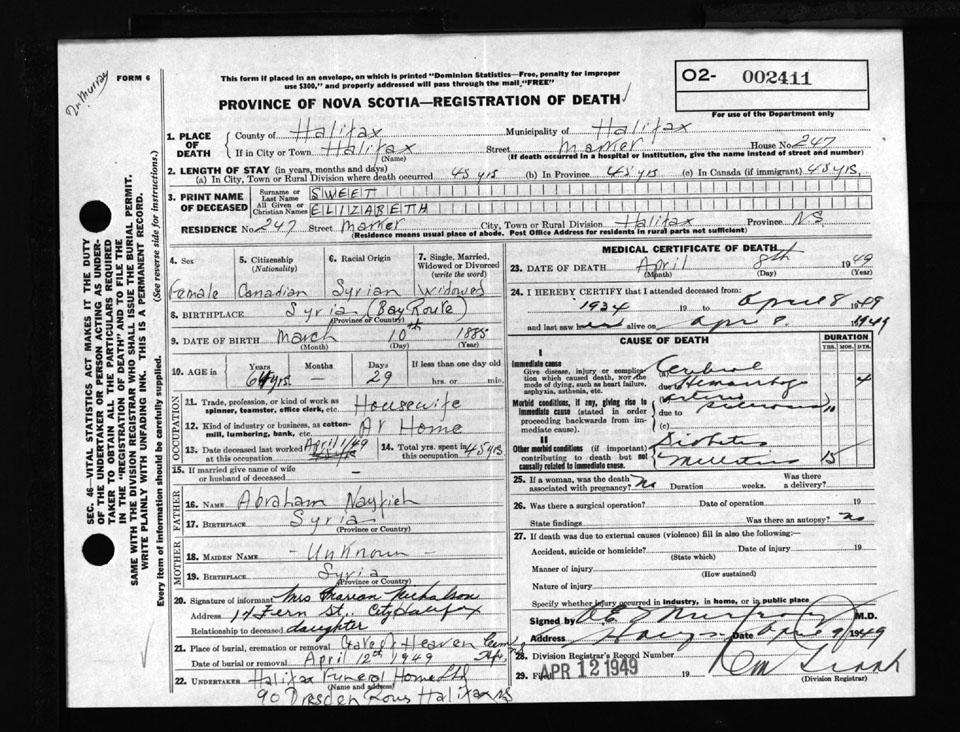 Dr Murray
FORM 6
This form if placed in an envelope, on which is printed "Dominion Statistics—Free, penalty for improper
use $300," and properly addressed will pass through the mail "FREE"
PROVINCE OF NOVA SCOTIA—REGISTRATION OF DEATH
O2- 002411
For use of the Department only
SEC. 46—VITAL STATISTICS ACT MAKES IT THE DUTY
OF THE UNDERTAKER OR PERSON ACTING AS UNDER-
TAKER TO OBTAIN ALL THE PARTICULARS REQUIRED
IN THE "REGISTRATION OF DEATH" AND TO FILE THE
SAME WITH THE DIVISION REGISTRAR WHO SHALL ISSUE THE BURIAL PERMIT.
WRITE PLAINLY WITH UNFADING INK. THIS IS A PERMANENT RECORD.
Every item of information should be carefully supplied. (See reverse side for instructions.)
1. PLACE OF DEATH County of Halifax Municipality of Halifax
If in City or Town Halifax Street House No. 247
(Name) (If death occurred in a hospital or institution, give the name instead of street and number)
2. LENGTH OF STAY (in years, months and days)
(a) In City, Town or Rural Division where death occurred 45 yrs (b) In Province 45 yrs (c) In Canada (if immigrant) 45 yrs.
3. PRINT NAME OF DECEASED Surname or Last Name SWEET
All Given or Christian Names ELIZABETH
RESIDENCE No. 247 Street City, Town or Rural Division Halifax Province N.S.
(Residence means usual place of abode. Post Office Address for residents in rural parts not sufficient)
4. Sex 5. Citizenship (Nationality) 6. Racial Origin 7. Single, Married, Widowed or Divorced (write the word)
Female Canadian Syrian Widowed
8. BIRTHPLACE Syria (Bay Route)
(Province or Country)
9. DATE OF BIRTH March 10th 1885
(Month) (Day) (Year)
10. AGE in Years Months Days If less than one day old
64 yrs. — 29 hrs. or min.
OCCUPATION
11. Trade, profession, or kind of work as spinner, teamster, office clerk, etc. Housewife
12. Kind of industry or business, as cotton-mill, lumbering, bank, etc. At Home
13. Date deceased last worked at this occupation April 1/49 14. Total yrs. spent in this occupation 45 yrs
15. If married give name of wife or husband of deceased —
FATHER
16. Name Abraham Nayfieh
17. Birthplace Syria
(Province or Country)
MOTHER
18. MAIDEN NAME - Unknown -
19. BIRTHPLACE Syria
(Province or Country)
20. Signature of informant Mrs Marion Nicholson
Address 17 Fern St., City Halifax
Relationship to deceased daughter
21. Place of burial, cremation or removal Gate of Heaven
Date of burial or removal April 12th 1949
22. UNDERTAKER Halifax Funeral Home Ltd
(Name and address)
90 Dresden Row Halifax NS
MEDICAL CERTIFICATE OF DEATH
23. DATE OF DEATH April 8th 1949
(Month) (Day) (Year)
24. I HEREBY CERTIFY that I attended deceased from:
1934 19 to April 8 1949
and last saw alive on Apr 8 1949
CAUSE OF DEATH DURATION
YRS. MOS. DYS.
I
Immediate cause
Give disease, injury or complication which caused death, NOT the mode of dying, such as heart failure, asphyxia, asthenia, etc.
(a) Cerebral
due to Hemorrhage 4
Morbid conditions, if any, giving rise to immediate cause (stated in order proceeding backwards from immediate cause)
(b) Arterio
due to sclerosis
(c)
II
Other morbid conditions (if important) contributing to death but not causally related to immediate cause.
Diabetes
Mellitus 15
25. If a woman, was the death associated with pregnancy? No Duration weeks. Was there a delivery?
26. Was there a surgical operation? Date of operation 19
State findings Was there an autopsy? No
27. If death was due to external causes (violence) fill in also the following:—
Accident, suicide or homicide? Date of injury 19
(State which)
Manner of injury
(How sustained)
Nature of injury
Specify whether injury occurred in industry, in home, or in public place
Signed by M.D.
Address Date April 9 1949
28. Division Registrar's Record Number
29. Filed APR 12 1949 19
(Division Registrar)